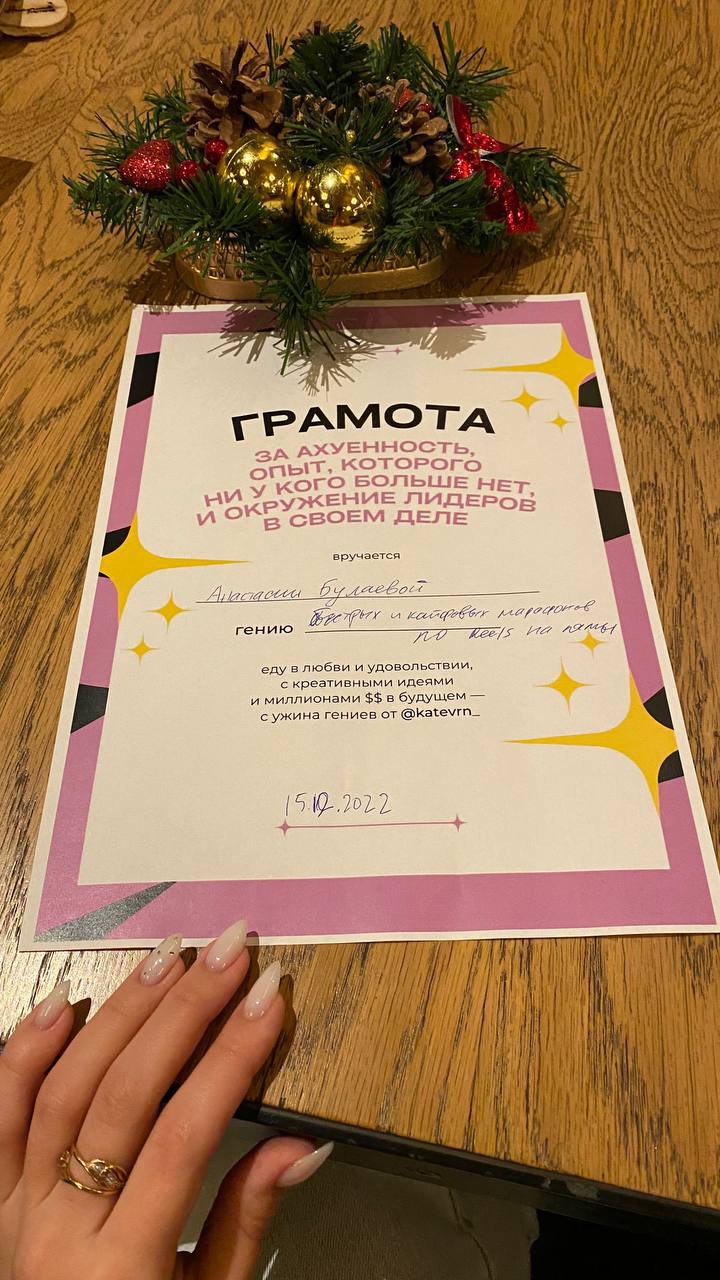 ГРАМОТА
ЗА АХУЕННОСТЬ,
ОПЫТ, КОТОРОГО
НИ У КОГО БОЛЬШЕ НЕТ,
И ОКРУЖЕНИЕ ЛИДЕРОВ
В СВОЕМ ДЕЛЕ
вручается
Анастасии Булаевой
гению быстрых и кайфовых марафонов
по reels на лямы
еду в любви и удовольствии,
с креативными идеями
и миллионами $$ в будущем —
с ужина гениев от @katevrn_
15.12.2022